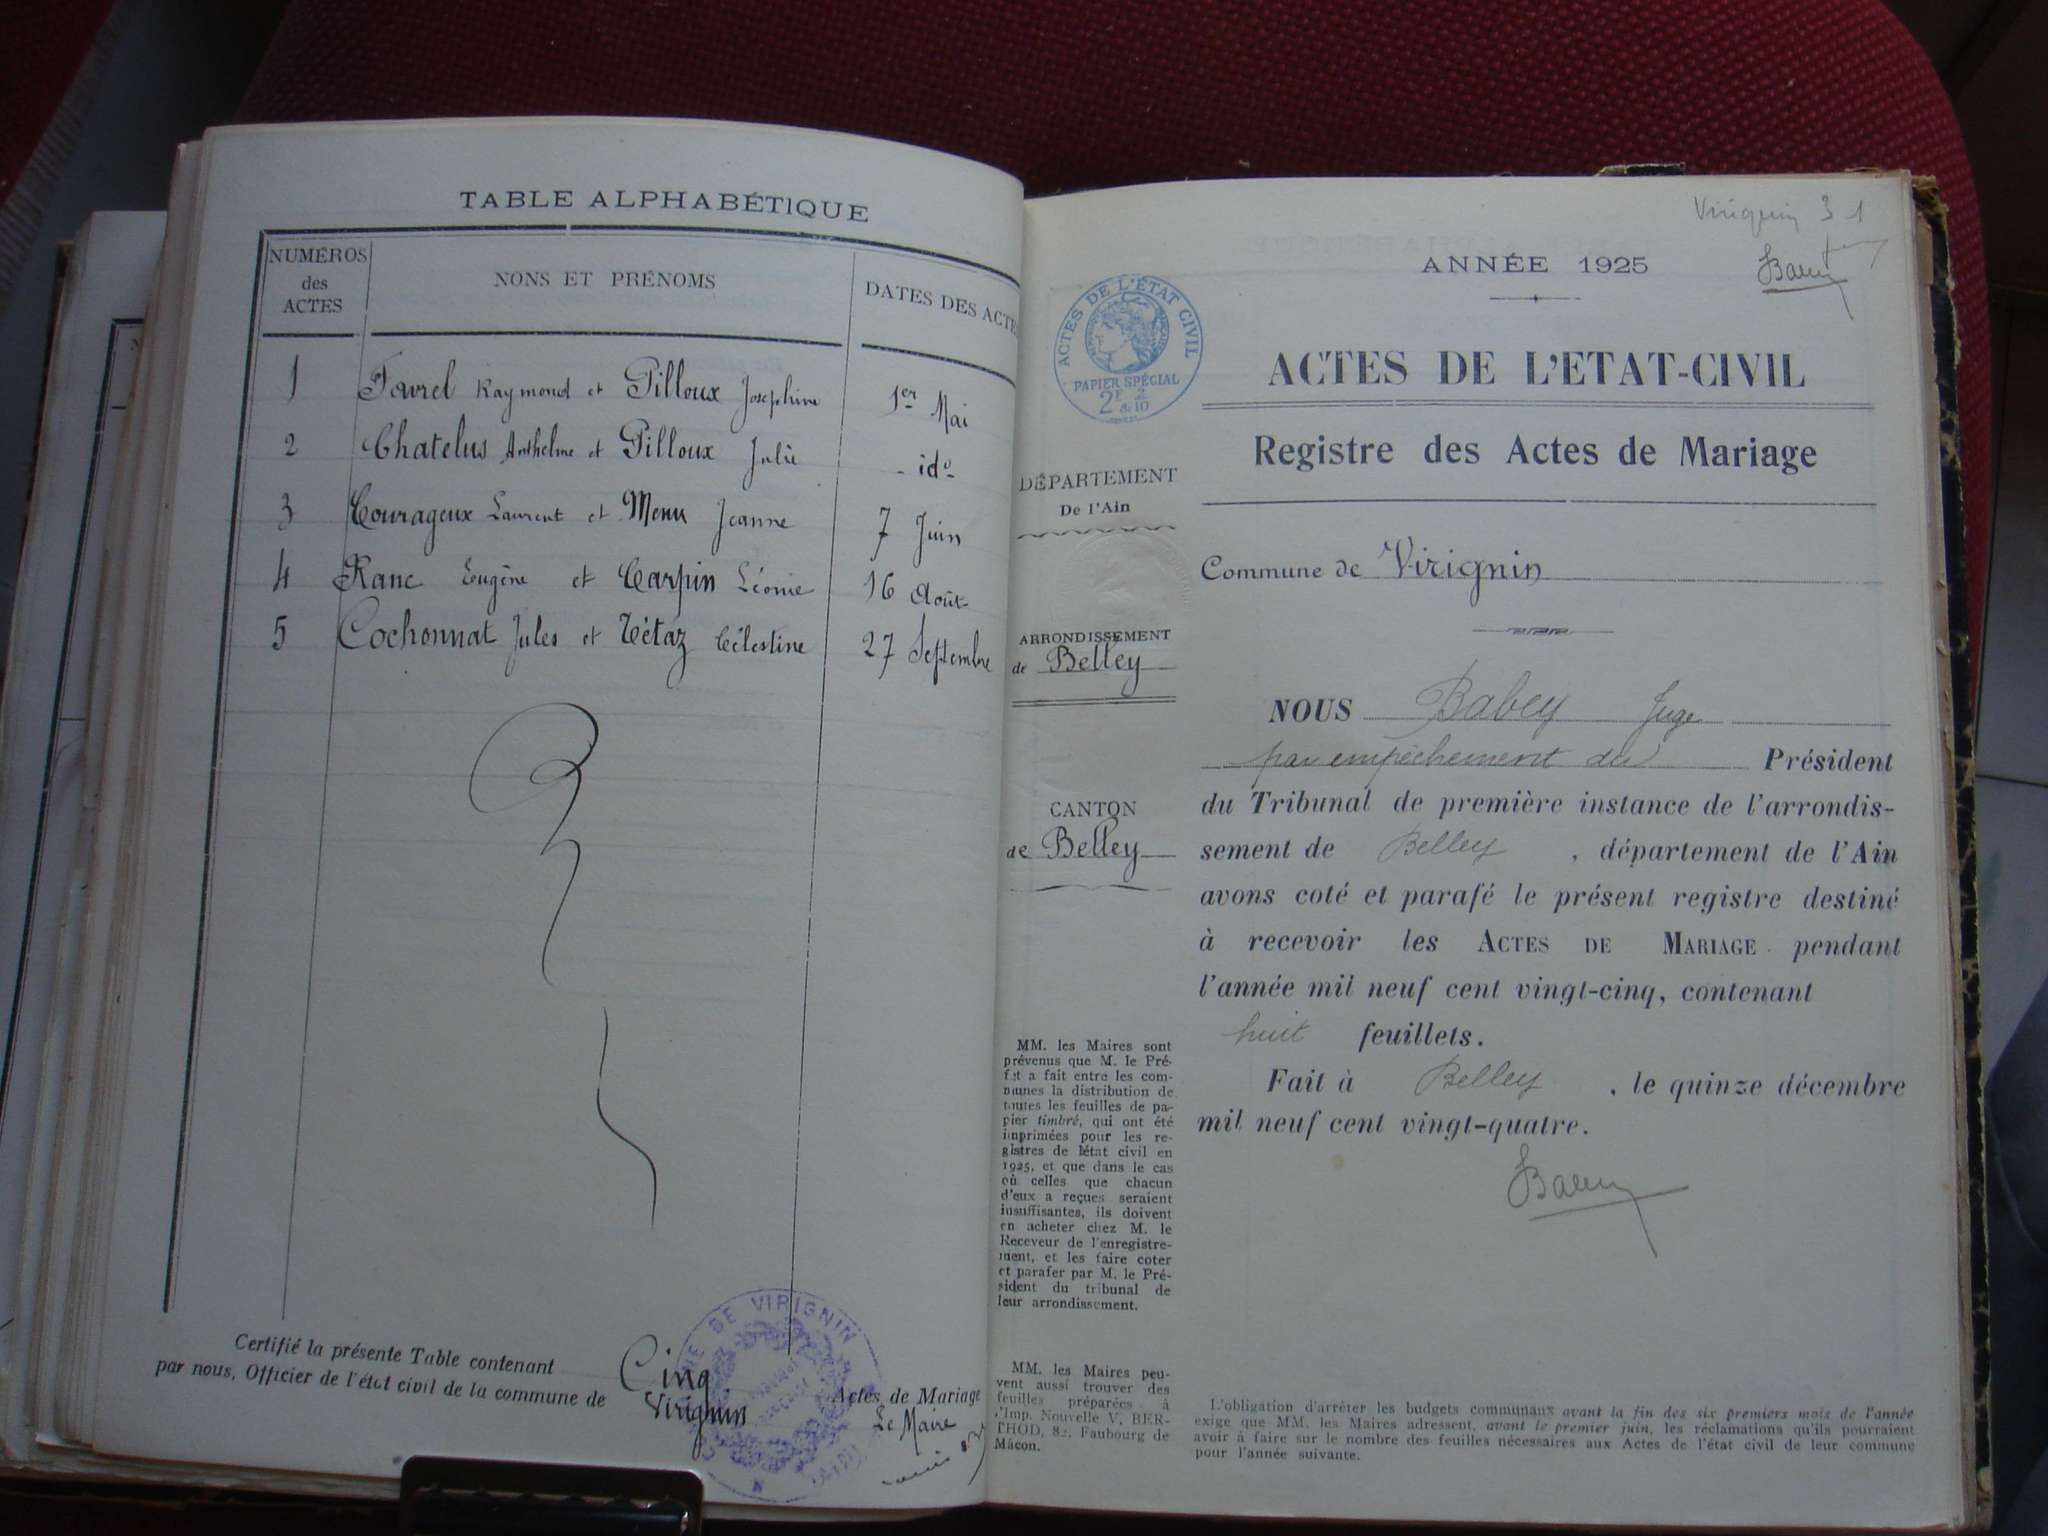 TABLE ALPHABÉTIQUE
NUMÉROS
des
ACTES
NONS ET PRÉNOMS
DATES DES ACTE
1 Favrel Raymond et Pilloux Josephine 1er Mai
2 Chatelus Anthelme et Pilloux Julie - ido-
3 Courageux Laurent et Menu Jeanne 7 Juin
4 Ranc Eugène et Carpin Léonie 16 Août
5 Cochonnat Jules et Tétaz Célestine 27 Septembre
Certifié la présente Table contenant Cinq Actes de Mariage
par nous, Officier de l'état civil de la commune de Virignin
Le Maire
DE VIRIGNIN
Virignin 3 1
ANNÉE 1925
ACTES DE L'ÉTAT CIVIL
PAPIER SPÉCIAL
2F 2
&10
DÉPARTEMENT
De l'Ain
ARRONDISSEMENT
de Belley
CANTON
de Belley
MM. les Maires sont
prévenus que M. le Pré-
fet a fait entre les com-
munes la distribution de
toutes les feuilles de pa-
pier timbré, qui ont été
imprimées pour les re-
gistres de létat civil en
1925, et que dans le cas
où celles que chacun
d'eux a reçues seraient
insuffisantes, ils doivent
en acheter chez M. le
Receveur de l'enregistre-
ment, et les faire coter
et parafer par M. le Pré-
sident du tribunal de
leur arrondissement.
MM. les Maires peu-
vent aussi trouver des
feuilles préparées à
l'Imp. Nouvelle V, BER-
THOD, 82, Faubourg de
Mâcon.
ACTES DE L'ETAT-CIVIL
Registre des Actes de Mariage
Commune de Virignin
NOUS Babey Juge
par empêchement du Président
du Tribunal de première instance de l'arrondis-
sement de Belley , département de l'Ain
avons coté et parafé le présent registre destiné
à recevoir les ACTES DE MARIAGE pendant
l'année mil neuf cent vingt-cinq, contenant
huit feuillets.
Fait à Belley , le quinze décembre
mil neuf cent vingt-quatre.
L'obligation d'arrêter les budgets communaux avant la fin des six premiers mois de l'année
exige que MM. les Maires adressent, avant le premier juin, les réclamations qu'ils pourraient
avoir à faire sur le nombre des feuilles nécessaires aux Actes de l'état civil de leur commune
pour l'année suivante.